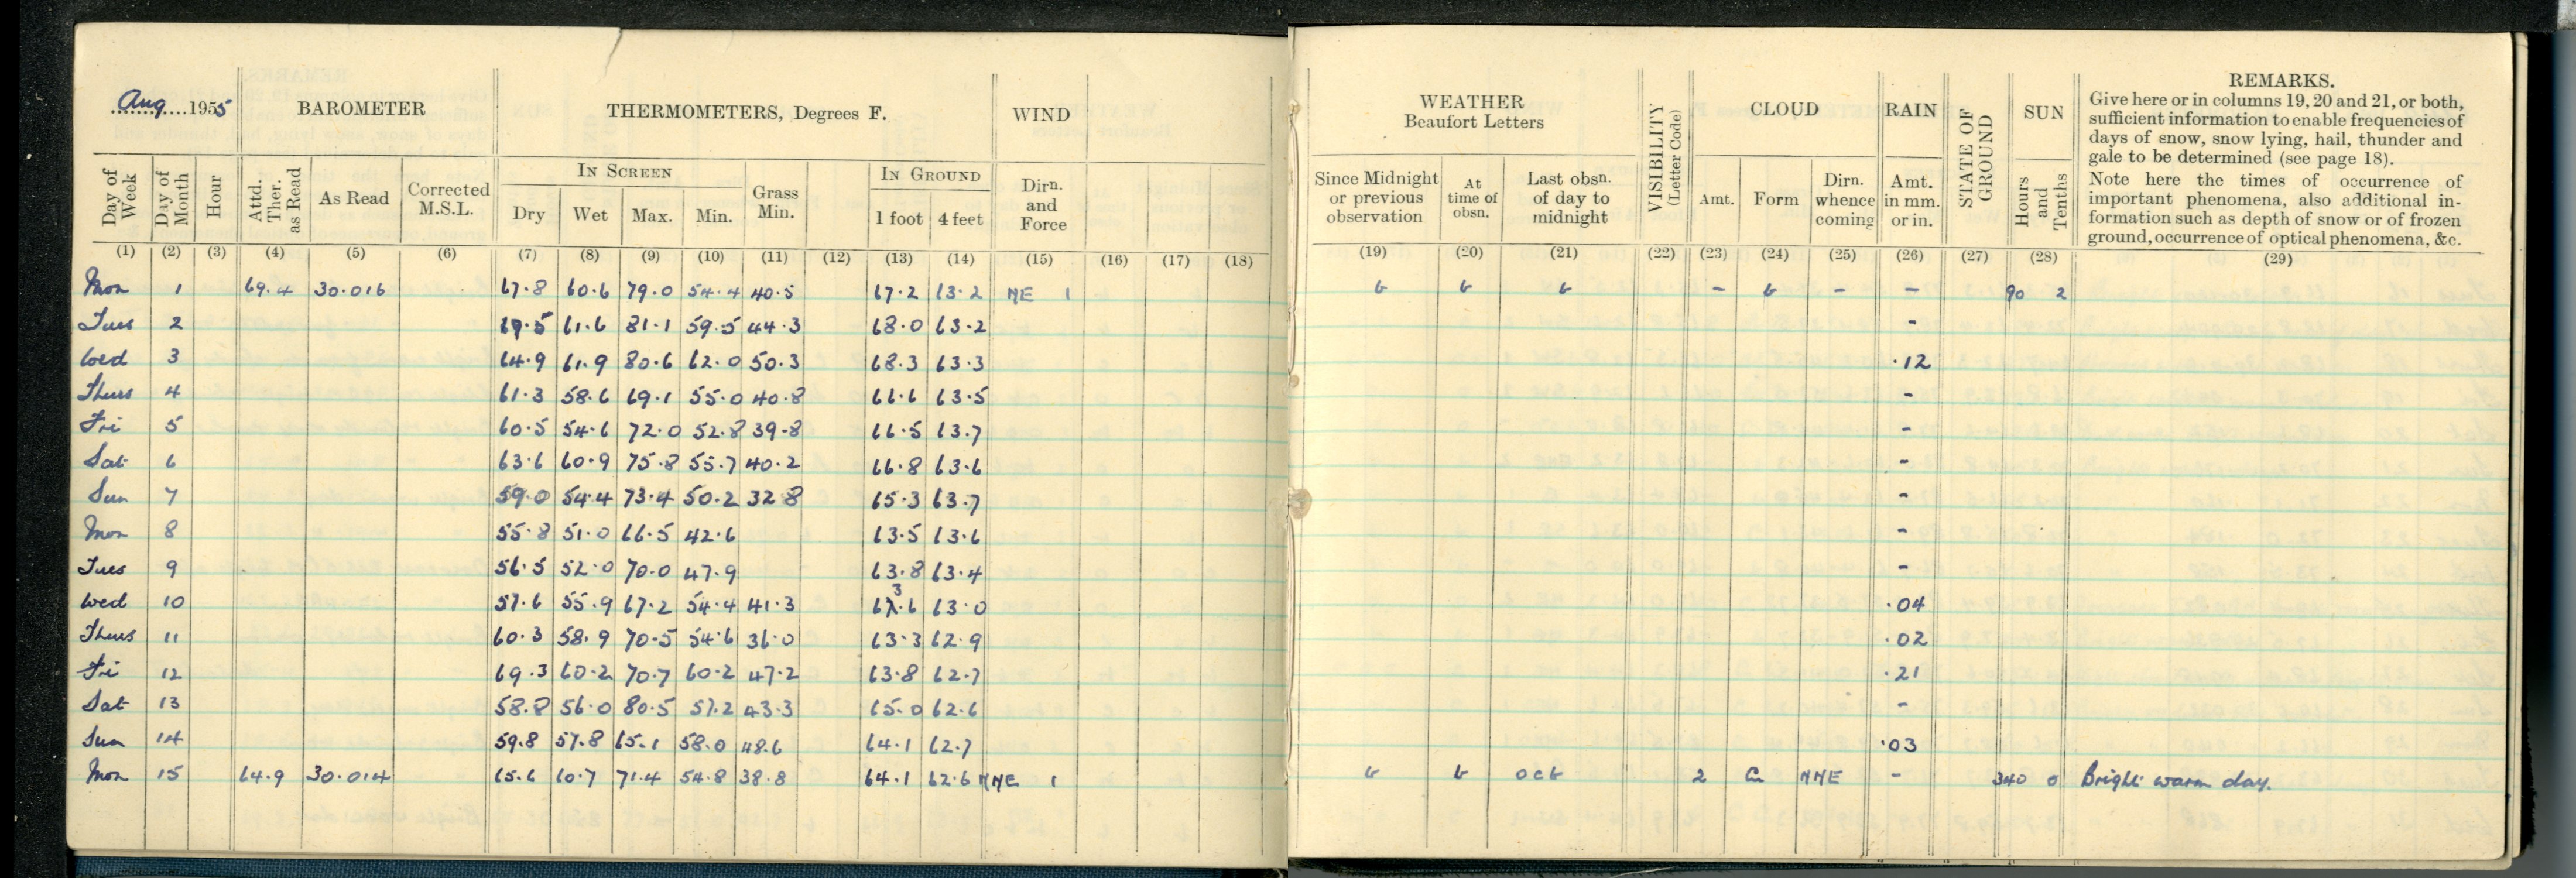 Aug 1955 BAROMETER THERMOMETERS, Degrees F. WIND WEATHER Beaufort Letters VISIBILITY (Letter Code) CLOUD RAIN STATE OF GROUND SUN REMARKS.
Give here or in columns 19, 20 and 21, or both,
sufficient information to enable frequencies of
days of snow, snow lying, hail, thunder and
gale to be determined (see page 18).
Note here the times of occurrence of
important phenomena, also additional in-
formation such as depth of snow or of frozen
ground, occurrence of optical phenomena, &c.
Day of Week Day of Month Hour Attd. Ther. as Read As Read Corrected M.S.L. IN SCREEN Dry Wet Max. Min. Grass Min. IN GROUND 1 foot 4 feet Dirn. and Force Since Midnight or previous observation At time of obsn. Last obsn. of day to midnight Amt. Form Dirn. whence coming Amt. in mm. or in. Hours and Tenths
(1) (2) (3) (4) (5) (6) (7) (8) (9) (10) (11) (12) (13) (14) (15) (16) (17) (18) (19) (20) (21) (22) (23) (24) (25) (26) (27) (28) (29)
Mon 1 69.4 30.016 67.8 60.6 79.0 54.4 40.5 67.2 63.2 NE 1 b b b - b - - 90 2
Tues 2 69.5 61.6 81.1 59.5 44.3 68.0 63.2 -
Wed 3 64.9 61.9 80.6 62.0 50.3 68.3 63.3 .12
Thurs 4 61.3 58.6 69.1 55.0 40.8 66.6 63.5 -
Fri 5 60.5 54.6 72.0 52.8 39.8 66.5 63.7 -
Sat 6 63.6 60.9 75.8 55.7 40.2 66.8 63.6 -
Sun 7 59.0 54.4 73.4 50.2 32.8 65.3 63.7 -
Mon 8 55.8 51.0 66.5 42.6 63.5 63.6 -
Tues 9 56.5 52.0 70.0 47.9 63.8 63.4 -
Wed 10 57.6 55.9 67.2 54.4 41.3 63.6 63.0 .04
Thurs 11 60.3 58.9 70.5 54.6 36.0 63.3 62.9 .02
Fri 12 69.3 60.2 70.7 60.2 47.2 63.8 62.7 .21
Sat 13 58.8 56.0 80.5 57.2 43.3 65.0 62.6 -
Sun 14 59.8 57.8 65.1 58.0 48.6 64.1 62.7 .03
Mon 15 64.9 30.014 65.6 60.7 71.4 54.8 38.8 64.1 62.6 NNE 1 b b bcb 2 Cu NNE - 340 0 Bright warm day.